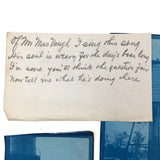 Of Mr MacDougl I sing this song
His soul is weary for the day's been long
I'm sure you'll think the question fair
Now tell me what he's doing there